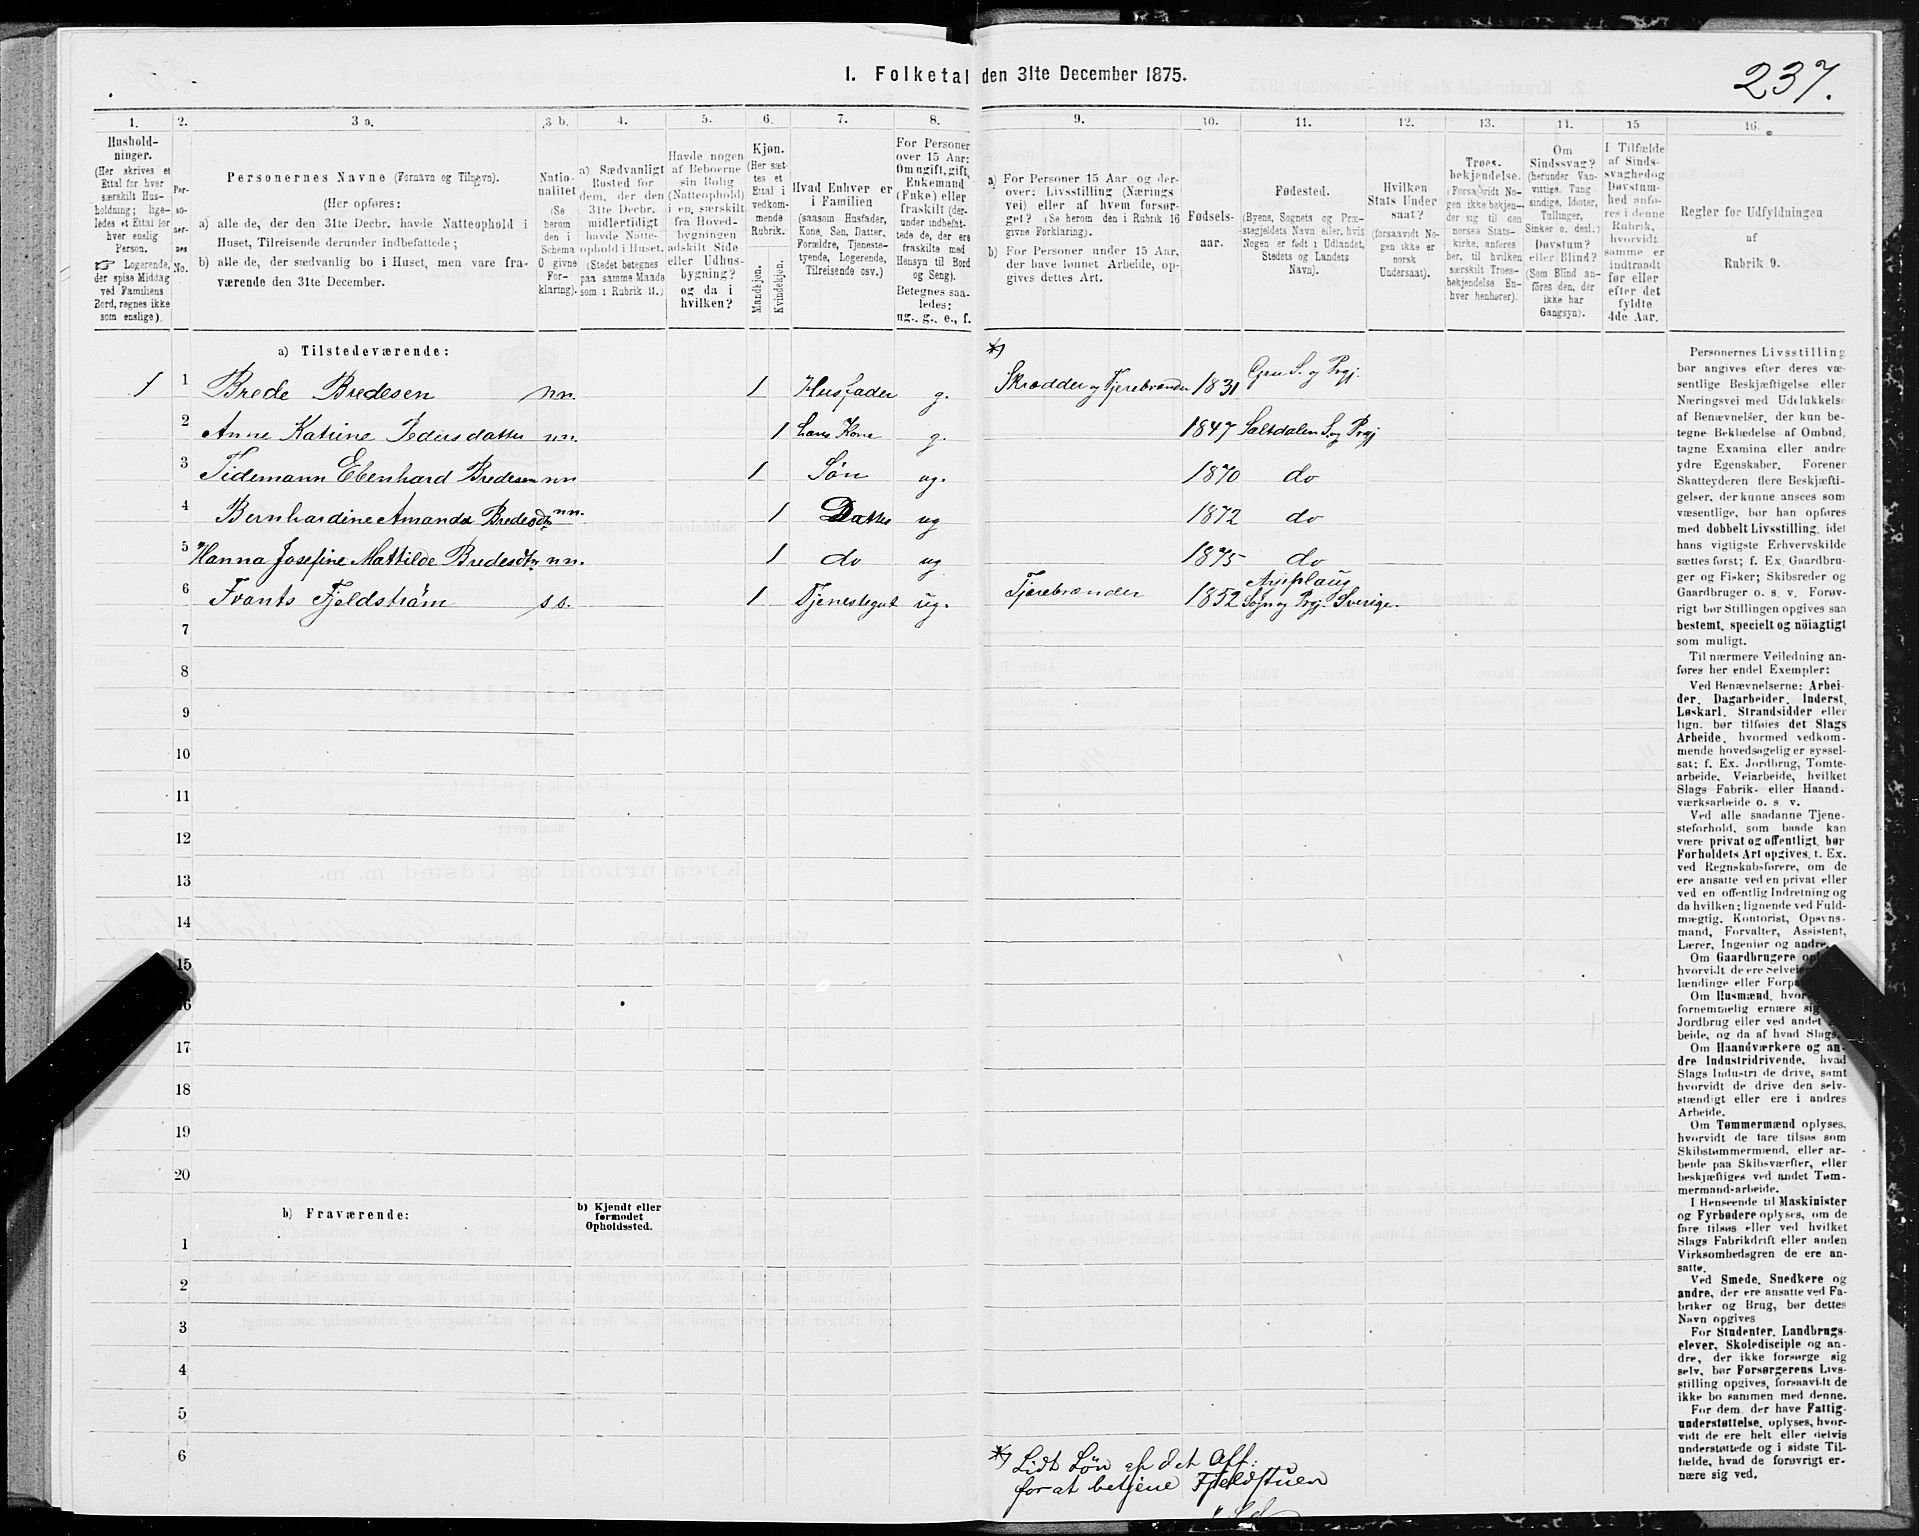 I. Folketal den 31te December 1875.
237.
1.
Hushold-
ninger.
(Her skrives et
Ettal for hver
særskilt Hus-
holdning; lige-
ledes et Ettal for
hver enslig
Person.
☞ Logerende,
der spise Middag
ved Familiens
Bord, regnes ikke
som enslige).
2.
Per-
so-
ner-
nes
No.
3 a.
Personernes Navne (Fornavn og Tilnavn).
(Her opføres:
a) alle de, der den 31te Decbr. havde Natteophold i
Huset, Tilreisende derunder indbefattede;
b) alle de, der sædvanlig bo i Huset, men vare fra-
værende den 31te December.
3 b.
Natio-
nalitet
(Se
herom
den i
Schema
O givne
For-
klaring).
4.
a) Sædvanligt
Bosted for
dem, der den
31te Decbr.
midlertidigt
havde Natte-
ophold i Huset.
(Stedet betegnes
paa samme Maade
som i Rubrik 11.)
5.
Havde nogen
af Beboerne
sin Bolig
(Natteophold)
i en, særskilt
fra Hoved-
bygningen
adskilt Side
eller Udhus-
bygning?
og da i
hvilken?
6.
Kjøn.
(Her sæt-
tes et
Ettal i
vedkom-
mende
Rubrik.
Mandkjøn.
Kvindekjøn.
7.
Hvad Enhver er
i Familien
(saasom Husfader,
Kone, Søn, Datter,
Forældre, Tjeneste-
tyende, Logerende,
Tilreisende osv.)
8.
For Personer
over 15 Aar:
Om ugift, gift,
Enkemand
(Enke) eller
fraskilt (der-
under indbefat-
tede de, der ere
fraskilte med
Hensyn til Bord
og Seng).
Betegnes saa-
ledes:
ug., g., e., f.
9.
a) For Personer 15 Aar og der-
over: Livsstilling (Nærings
vei) eller af hvem forsør-
get? (Se herom den i Rubrik 16
givne Forklaring).
b) For Personer under 15 Aar,
der have lønnet Arbeide, op-
gives dettes Art.
10.
Fødsels-
aar.
11.
Fødested.
(Byens, Sognets og Præ-
stegjeldets Navn eller, hvis
Nogen er født i Udlandet,
Stedets og Landets
Navn).
12.
Hvilken
Stats Under
saat?
(forsaavidt No-
gen ikke er
norsk
Undersaat).
13.
Troes-
bekjendelse.
(Forsaavidt No-
gen ikke bekjen-
der sig til den
norske Stats-
kirke, anføres
her, til hvilken
særskilt Troes-
bekjendelse En-
hver henhører).
14.
Om
Sindssvag?
(herunder Van-
vittige, Tung
sindige, Idioter,
Tullinger,
Sinker o. desl.)
Døvstum?
eller Blind?
(Som Blind an-
føres den, der
ikke har
Gangsyn).
15
I Tilfælde
af Sinds-
svaghed og
Døvstum-
hed anfø-
res i denne
Rubrik,
hvorvidt
samme er
indtraadt
før eller
efter det
fyldte
4de Aar.
16.
Regler for Udfyldningen
af
Rubrik 9.
a) Tilstedeværende:
*)
1 1 Brede Bredesen nn. 1 Husfader g. Skrædder og Tjærebrænder 1831 S. og Prgj.
2 Anne Katrine Pedersdatter nn. 1 hans Kone g. 1847 Saltdalen S. og Prgj
3 Tidemann Ebenhard Bredesen nn 1 Søn ug. 1870 do
4 Bernhardine Amanda Bredesdtr nn. 1 Datter ug 1872 do
5 Hanna Josefine Mattilde Bredesdtr nn. 1 do ug 1875 do
6 Frants Fjeldstrøm s s. 1 Tjenestegut ug. Tjærebrænder 1852 Arjeplaug
Sogn og Prgj. Sverige.
7
8
9
10
11
12
13
14
15
16
17
18
19
20
b) Fraværende:
b) Kjendt eller
formodet
Opholdssted.
1
2
3
4
5
6
*) Lidt Løn af det Off:
for at betjene Fjeldstuen
Personernes Livsstilling
bør angives efter deres væ-
sentlige Beskjæftigelse eller
Næringsvei med Udelukkelse
af Benævnelser, der kun be-
tegne Beklædelse af Ombud,
tagne Examina eller andre
ydre Egenskaber. Forener
Skatteyderen flere Beskjæfti-
gelser, der kunne ansees som
væsentlige, bør han opføres
med dobbelt Livsstilling, idet
hans vigtigste Erhvervskilde
sættes først; f. Ex. Gaardbru-
ger og Fisker; Skibsreder og
Gaardbruger o. s. v. Forøv-
rigt bør Stillingen opgives saa
bestemt, specielt og nöiagtigt
som muligt.
Til nærmere Veiledning an-
føres her endel Exempler:
Ved Benævnelserne: Arbei-
der, Dagarbeider, Inderst,
Løskarl, Strandsidder eller
lign. bør tilføies det Slags
Arbeide, hvormed vedkom-
mende hovedsagelig er syssel-
sat; f. Ex. Jordbrug, Tomte-
arbeide, Veiarbeide, hvilket
Slags Fabrik- eller Haand-
værksarbeide o. s. v.
Ved alle saadanne Tjene-
steforhold, som baade kan
være privat og offentligt, bør
Forholdets Art opgives, t. Ex.
ved Regnskabsførere, om de
ere ansatte ved en privat eller
ved en offentlig Indretning og
da hvilken; lignende ved Fuld-
mægtig, Kontorist, Opsyns-
mand, Forvalter, Assistent,
Lærer, Ingeniør og andre.
Om Gaardbrugere
hvorvidt de ere
lændinge eller
Om Husmænd,
fornemmelig ernære sig
Jordbrug eller ved andet
beide, og da af hvad Slags.
Om Haandværkere og an-
dre Industridrivende, hvad
Slags Industri de drive, samt
hvorvidt de drive den selv-
stændigt eller ere i andres
Arbeide.
Om Tømmermænd oplyses,
hvorvidt de fare tilsøs som
Skibstømmermænd, eller ar-
beide paa Skibsværfter, eller
beskjæftiges ved andet Tøm-
mermand-arbeide.
I Henseende til Maskinister
og Fyrbødere oplyses, om de
fare tilsøs eller ved hvilket
Slags Fabrikdrift eller anden
Virksomhedsgren de ere an-
satte.
Ved Smede, Snedkere og
andre, der ere ansatte ved Fa-
briker og Brug, bør dettes
Navn opgives
For Studenter, Landbrugs-
elever, Skoledisciple og an-
dre, der ikke forsørge sig
selv, bør Forsørgerens Livs-
stilling opgives, forsaavidt de
ikke bo sammen med denne.
For dem, der have Fattig-
understøttelse, oplyses, hvor-
vidt de ere helt eller delvis
understøttede og i sidste Til-
fælde, hvad de forøvrigt er-
nære sig ved.